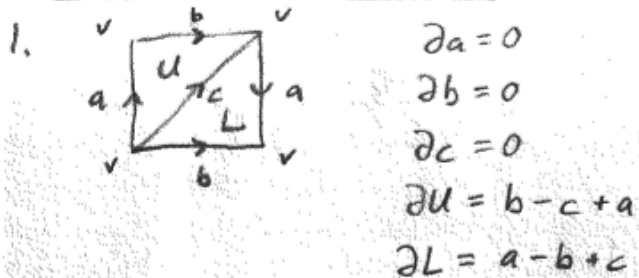 1.
v b v
U
a c a
L
v b v
∂a = 0
∂b = 0
∂c = 0
∂U = b - c + a
∂L = a - b + c